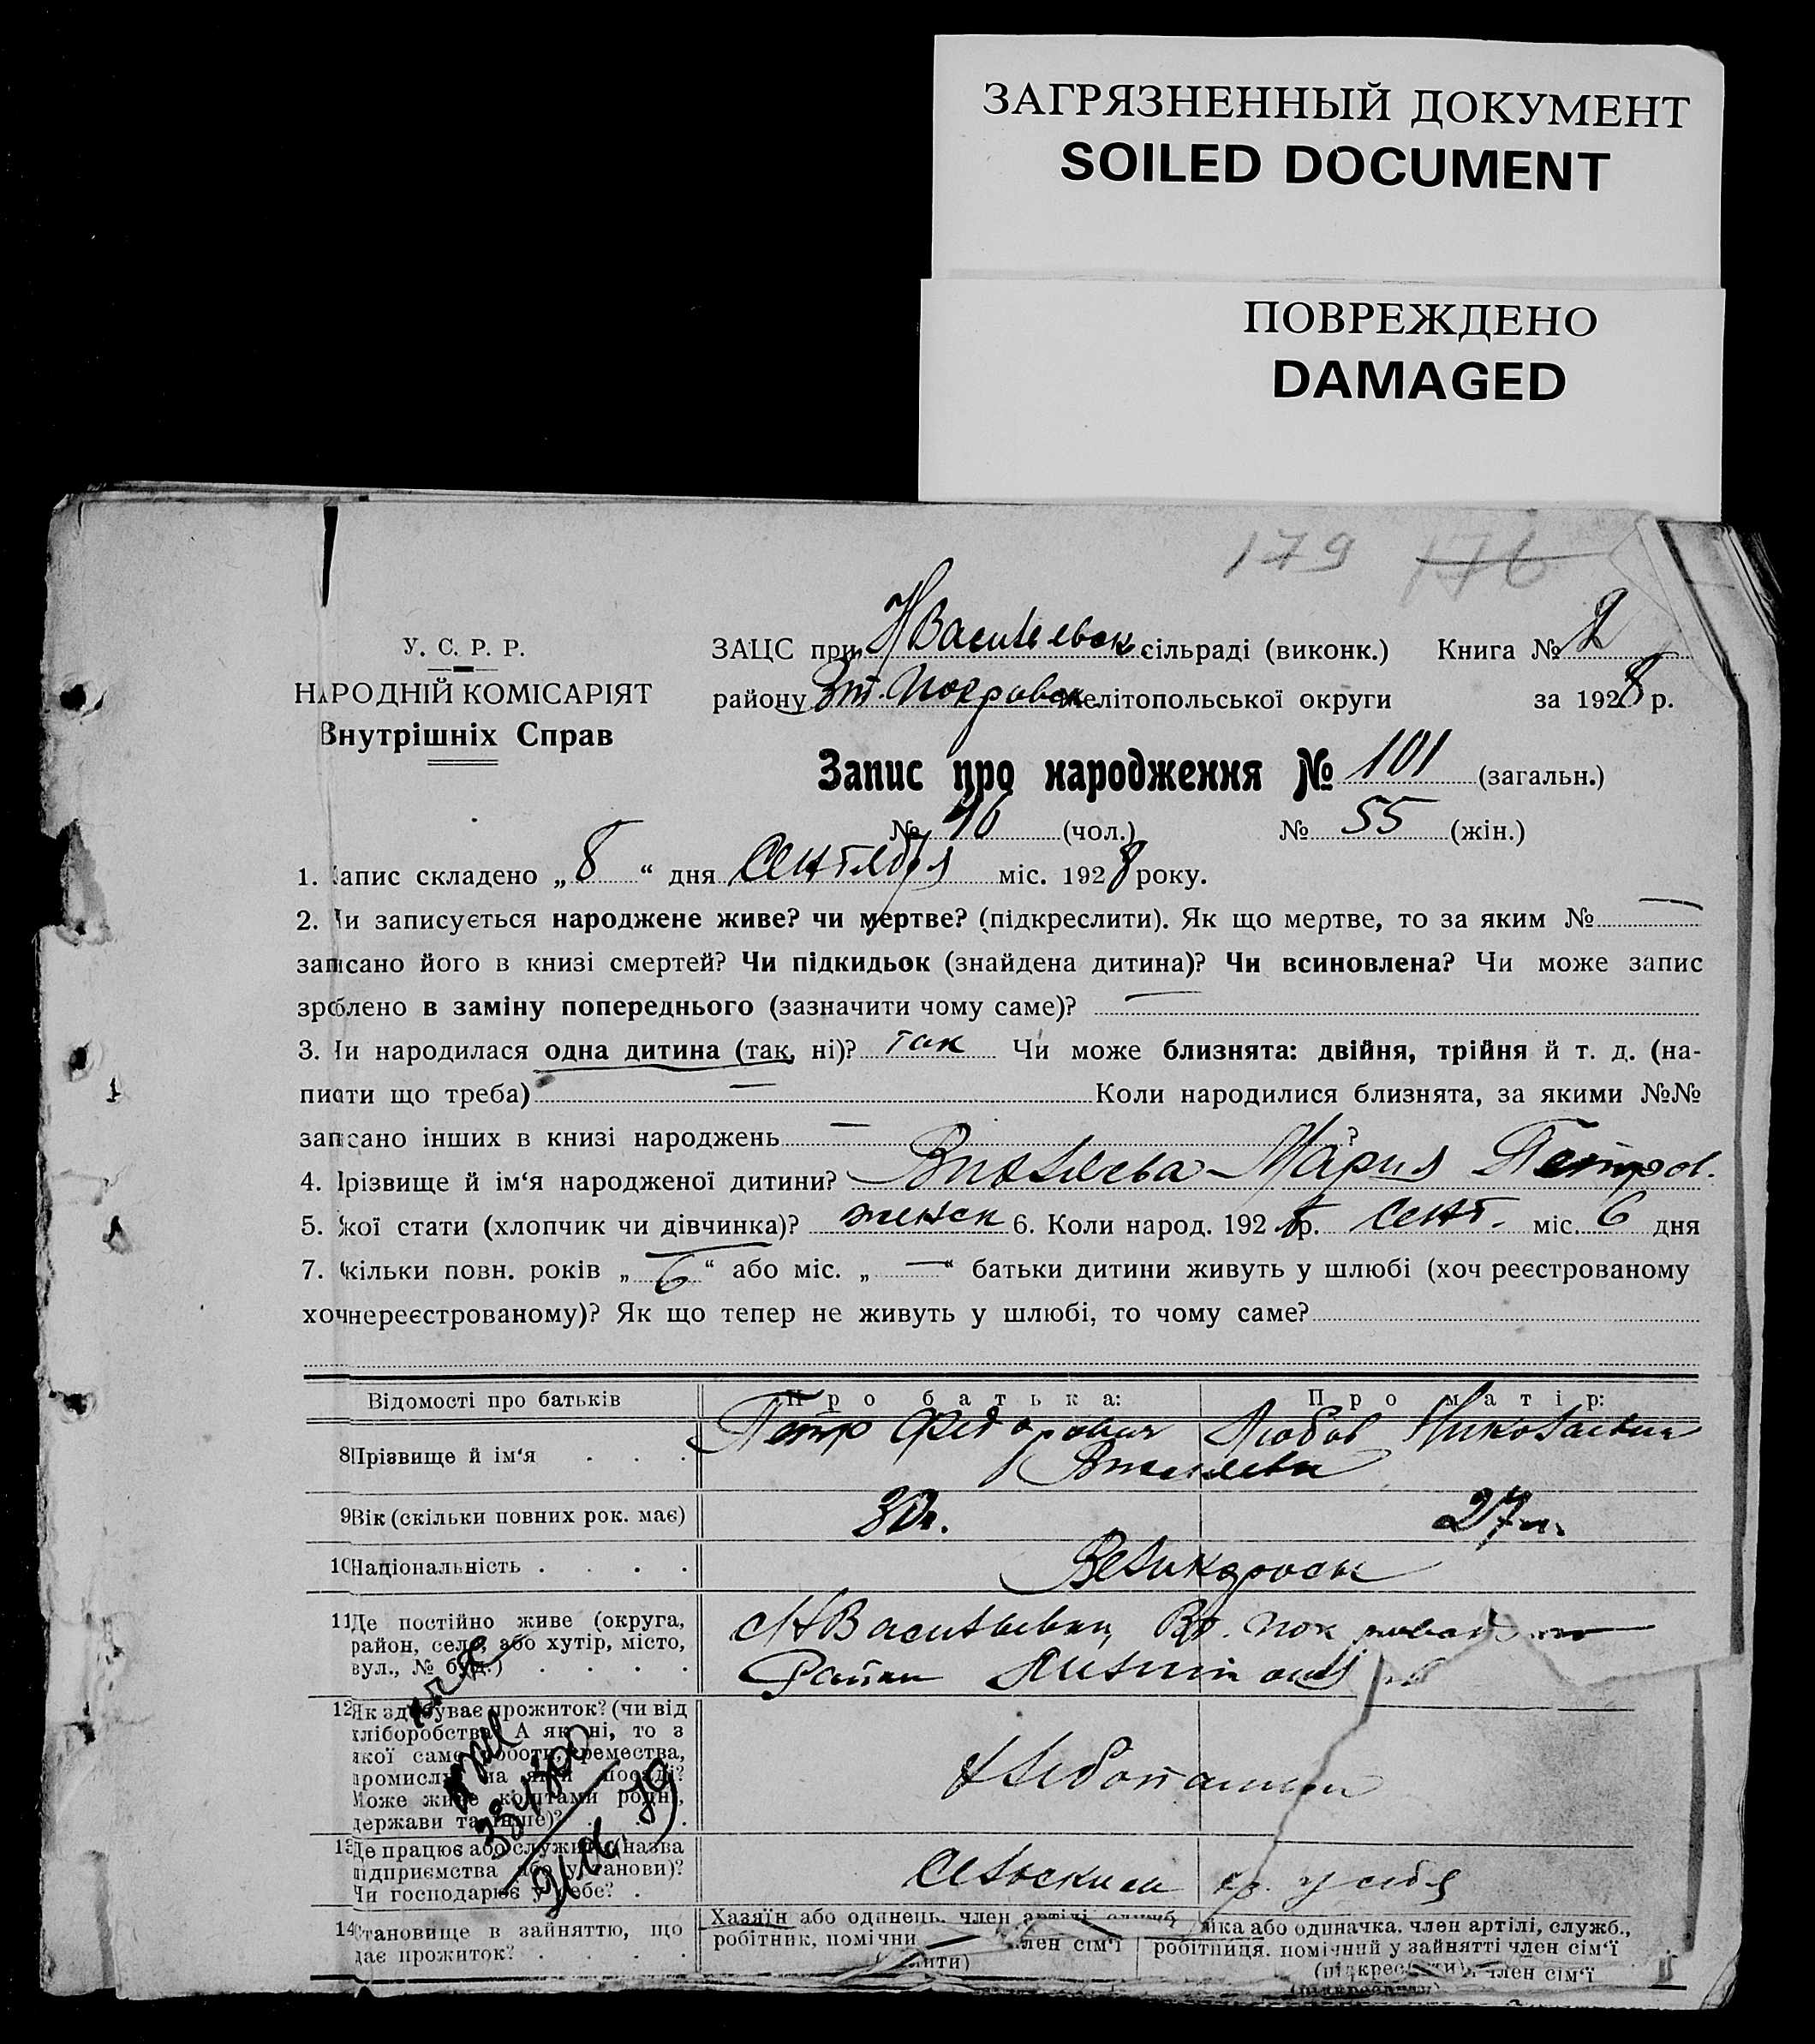 ЗАГРЯЗНЕННЫЙ ДОКУМЕНТ
SOILED DOCUMENT
ПОВРЕЖДЕНО
DAMAGED
179 176
У. С. Р. Р.
НАРОДНІЙ КОМІСАРІЯТ
Внутрішніх Справ
ЗАЦС при НВасильевск. сільраді (виконк.) Книга № 2
району Вт. Покровск мелітопольської округи за 1928 р.
Запис про народження № 101 (загальн.)
№ 46 (чол.) № 55 (жін.)
1. Запис складено „8“ дня Сентября міс. 1928 року.
2. Чи записується народжене живе? чи мертве? (підкреслити). Як що мертве, то за яким № —
записано його в книзі смертей? Чи підкидьок (знайдена дитина)? Чи всиновлена? Чи може запис
зроблено в заміну попереднього (зазначити чому саме)? —
3. Чи народилася одна дитина (так, ні)? так Чи може близнята: двійня, трійня й т. д. (на-
писати що треба) — Коли народилися близнята, за якими №№
записано інших в книзі народжень — ?
4. Прізвище й ім‘я народженої дитини? Мария Петров.
5. Якої стати (хлопчик чи дівчинка)? женск 6. Коли народ. 1928 р. Сент. міс. 6 дня
7. Скільки повн. років „6“ або міс. „—“ батьки дитини живуть у шлюбі (хоч реєстрованому
хоч нереєстрованому)? Як що тепер не живуть у шлюбі, то чому саме?
Відомості про батьків Про батька: Про матір:
Петр Федорович Любов Николаевна
8 Прізвище й ім‘я . . .
9 Вік (скільки повних рок. має) 30л. 27л.
10 Національність . . . . Великоросы
11 Де постійно живе (округа, НВасильевки,
район, село, або хутір, місто,
вул., № буд.) . . . . Району
12 Як здобуває прожиток? (чи від
хліборобства? А як ні, то з
якої саме роботи, ремества,
промислу, на якій посаді?
Може живе коштами родні,
держави та інше)? . . .
Хлебопашец
13 Де працює або служить (назва
підприємства або установи)?
Чи господарює у себе? .
Сельским хоз. у себя
14 Становище в зайняттю, що
дає прожиток? . . . .
Хазяїн або одинець. член артілі
робітник, помічни член сім‘ї
або одиначка. член артілі, служб.,
робітниця. помічний у зайнятті член сім‘ї
(підкреслити). член сім‘ї